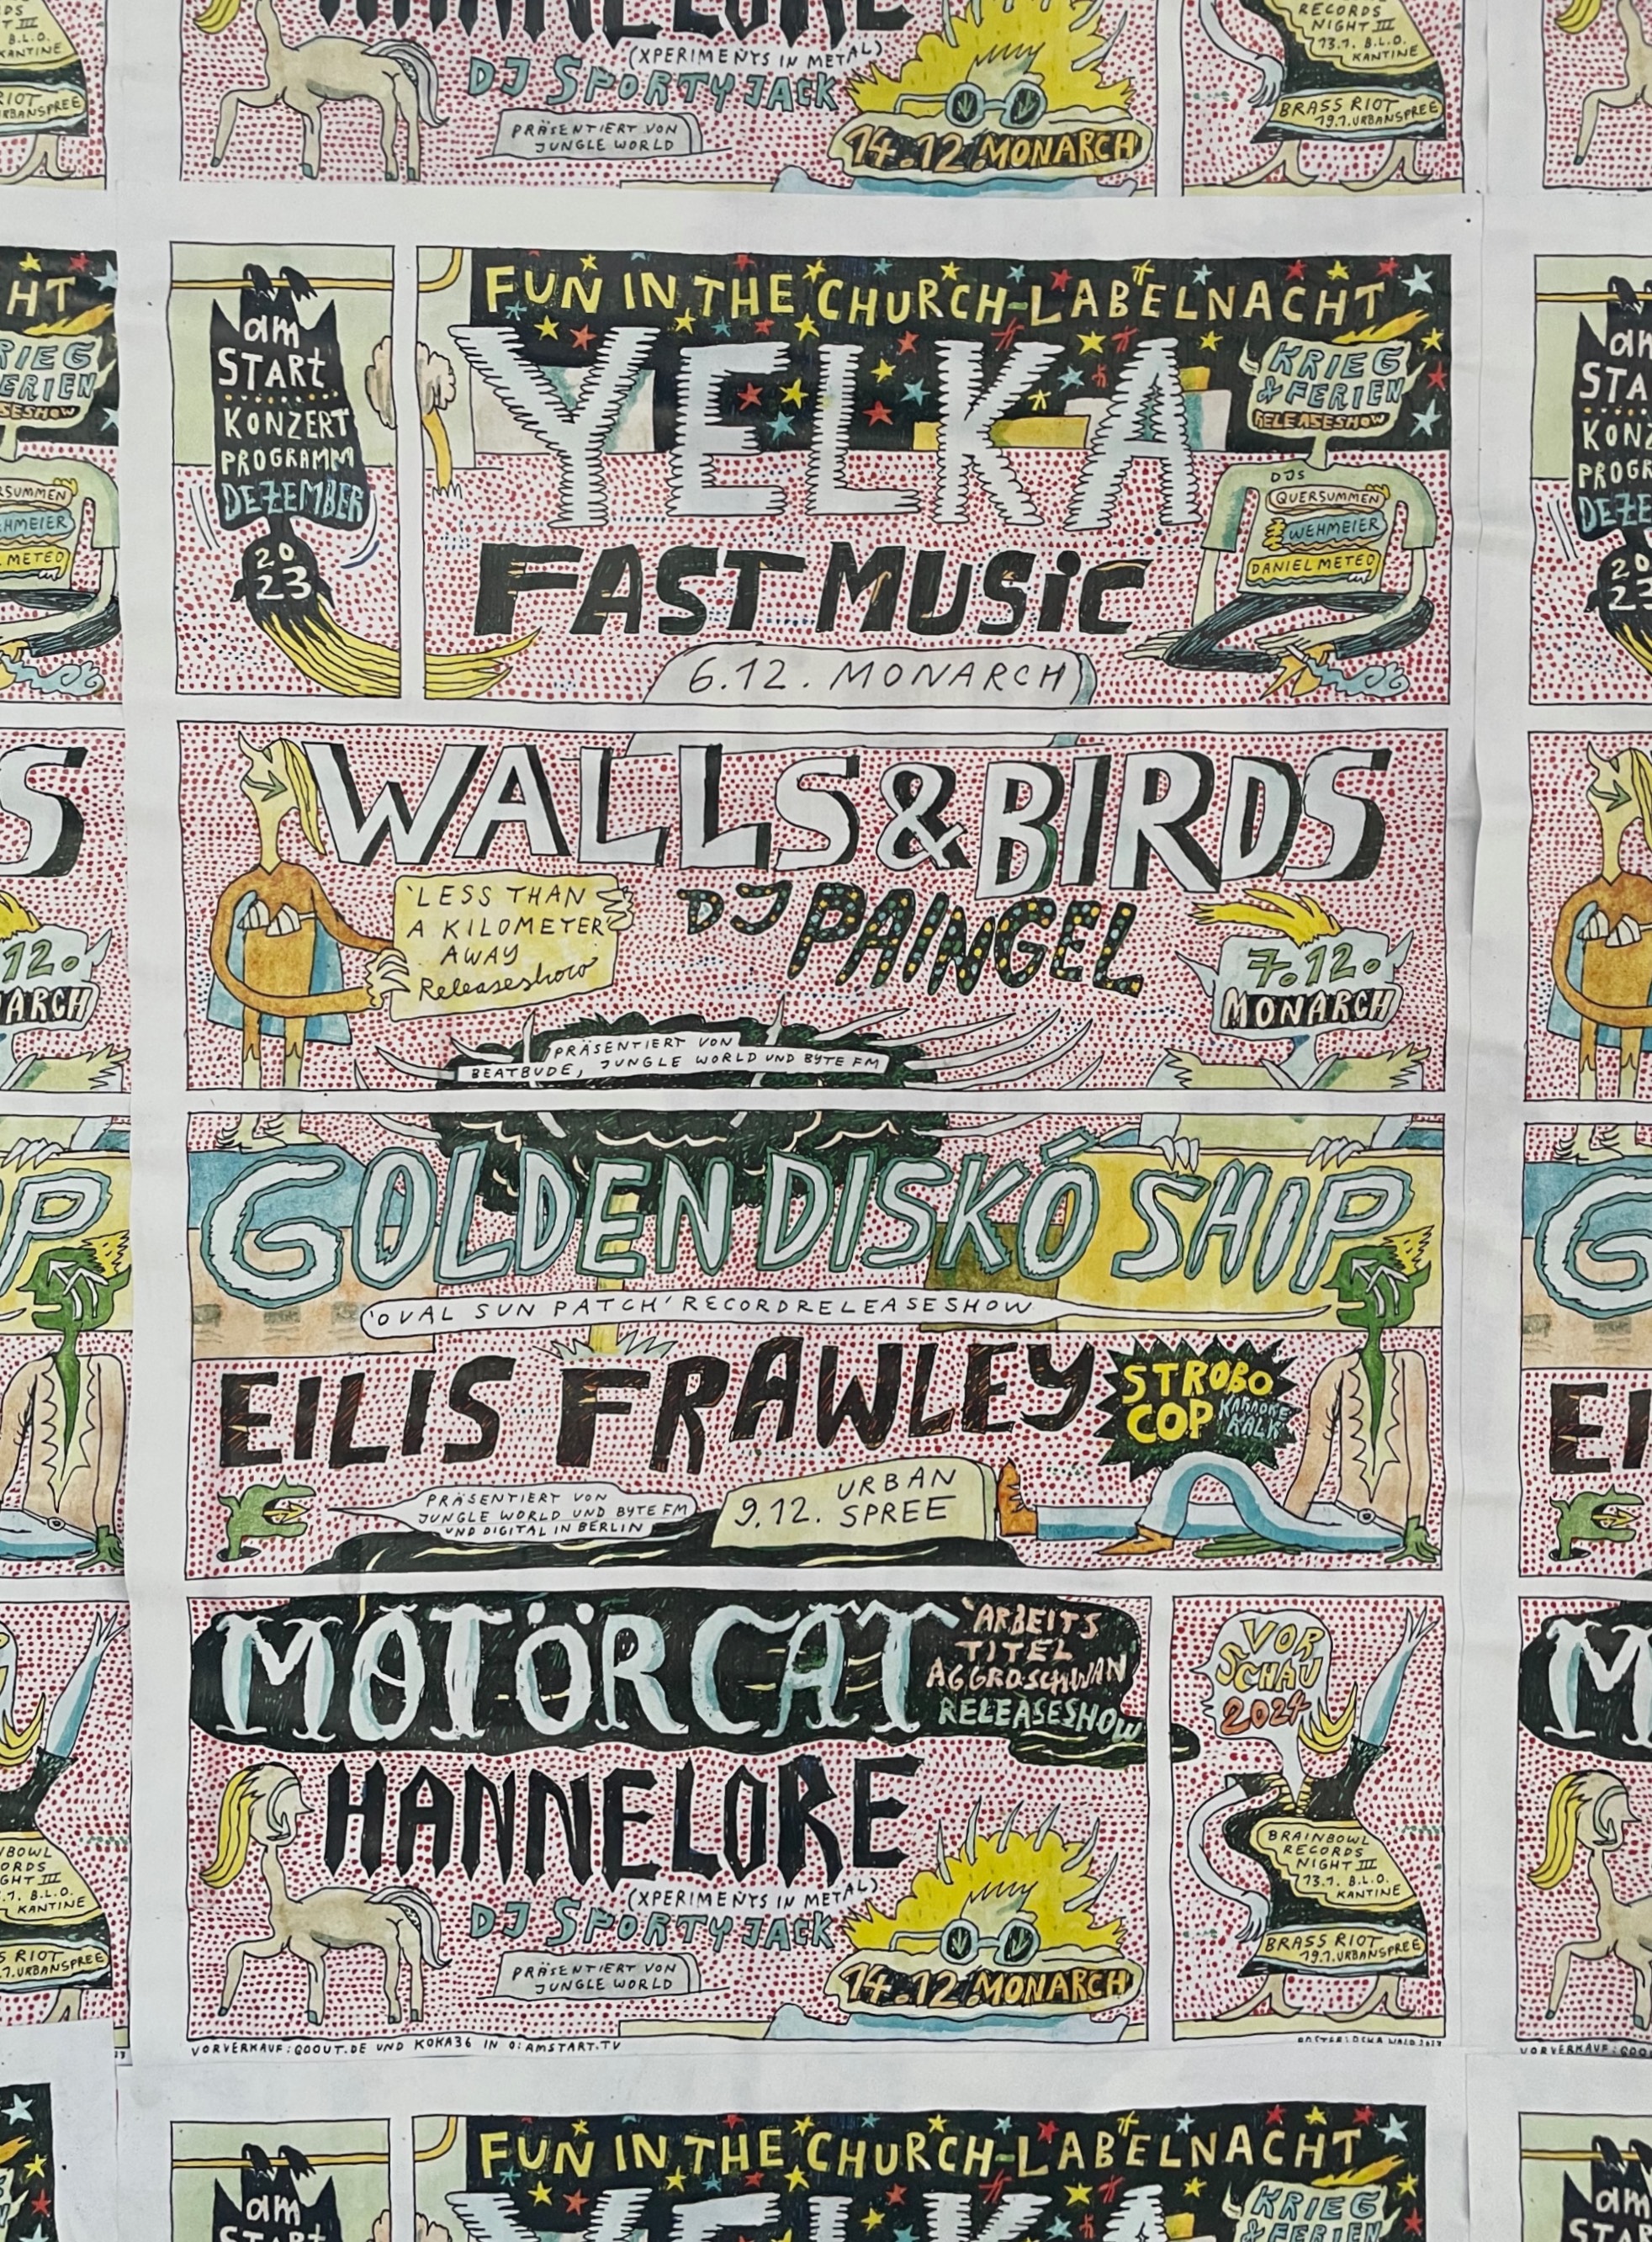 HANNELORE
(XPERIMENTS IN METAL)
DJ SPORTYJACK
PRÄSENTIERT VON
JUNGLE WORLD
14.12. MONARCH
RECORDS
NIGHT III
13.1. B.L.O.
KANTINE
BRASS RIOT
19.1. URBANSPREE
am
START
KONZERT
PROGRAMM
DEZEMBER
20
23
FUN IN THE CHURCH-LABELNACHT
YELKA
KRIEG
& FERIEN
RELEASESHOW
DJS
QUERSUMMEN
WEHMEIER
DANIEL METEO
FAST MUSIC
6.12. MONARCH
WALLS & BIRDS
'LESS THAN
A KILOMETER
AWAY
Releaseshow
DJ PAINGEL
7.12.
MONARCH
PRÄSENTIERT VON
BEATBUDE, JUNGLE WORLD UND BYTE FM
GOLDEN DISKÓ SHIP
'OVAL SUN PATCH' RECORDRELEASESHOW
EILIS FRAWLEY
STROBO
COP
KARAOKE
KALK
PRÄSENTIERT VON
JUNGLE WORLD UND BYTE FM
UND DIGITAL IN BERLIN
9.12. URBAN
SPREE
MOTÖRCAT
'ARBEITS
TITEL
AGGROSCHWAN
RELEASESHOW
HANNELORE
(XPERIMENTS IN METAL)
DJ SPORTYJACK
PRÄSENTIERT VON
JUNGLE WORLD
14.12. MONARCH
VOR
SCHAU
2024
BRAINBOWL
RECORDS
NIGHT III
13.1. B.L.O.
KANTINE
BRASS RIOT
19.1. URBANSPREE
VORVERKAUF: GOOUT.DE UND KOKA36 IN O: AMSTART.TV
FUN IN THE CHURCH-LABELNACHT
YELKA
KRIEG
& FERIEN
am
START